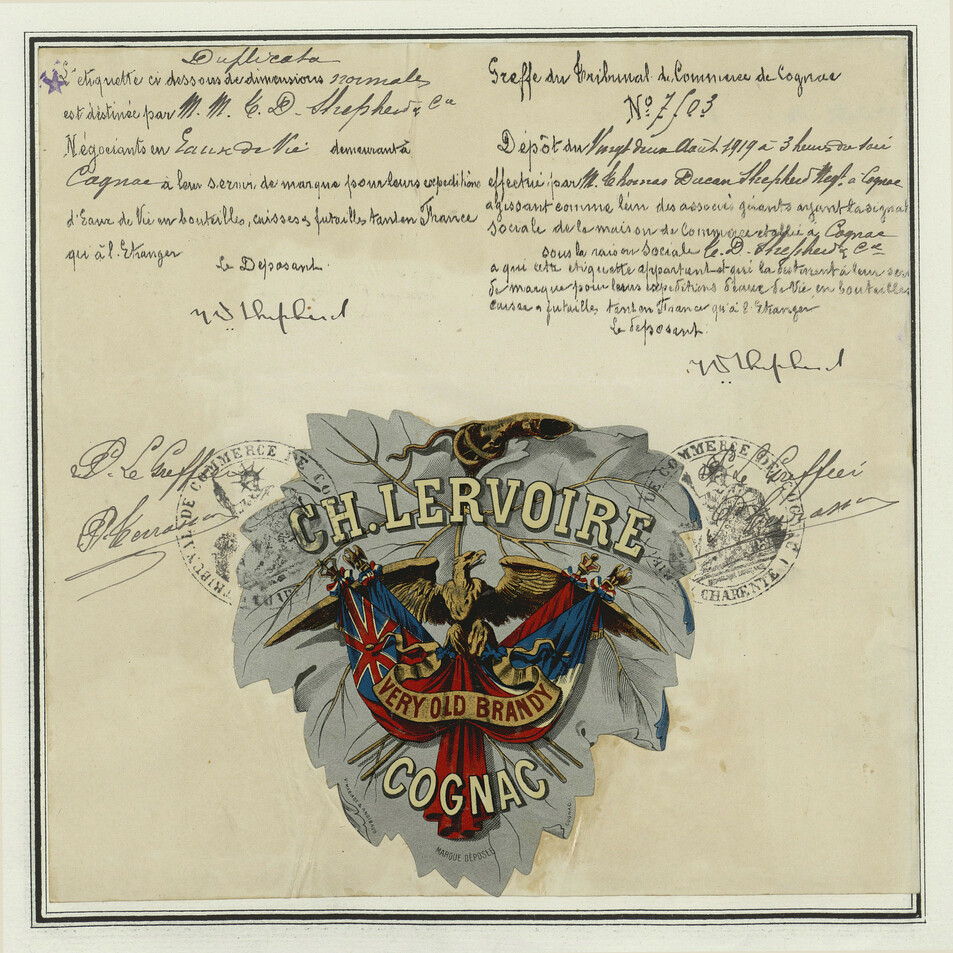 Duplicata
L'etiquette ci dessous de dimensions normales
est déstinée par M. M. T. D. Shepherd & Cie
Négociants en Eaux de Vie demeurant à
Cognac à leur servir de marque pour leurs expéditions
d'Eaux de Vie en bouteilles, caisses & futailles tant en France
qu'à l'Etranger
Le Déposant
T D Shepherd
Greffe du Tribunal de Commerce de Cognac
No 7503
Dépôt du Vingt deux Août 1919 à 3 heures du soir
effectué par M. Thomas Ducan Shepherd Negt. à Cognac
agissant comme l'un des associés gérants ayant la signat
sociale de la maison de Commerce établie à Cognac
sous la raison sociale T. D. Shepherd & Cie
a qui cette etiquette appartient et qui la destinent à leur ser
de marque pour leurs expéditions d'eaux de Vie en bouteilles
caisses & futailles tant en France qu'à l'Etranger
Le déposant
T D Shepherd
P. Le Greffier
TRIBUNAL DE COMMERCE DE CO
Le Greffier
DE COMMERCE DE COGNAC
CHARENTE
DÉPOSÉ
CH. LERVOIRE
VERY OLD BRANDY
COGNAC
COGNAC
MARQUE DÉPOSÉE